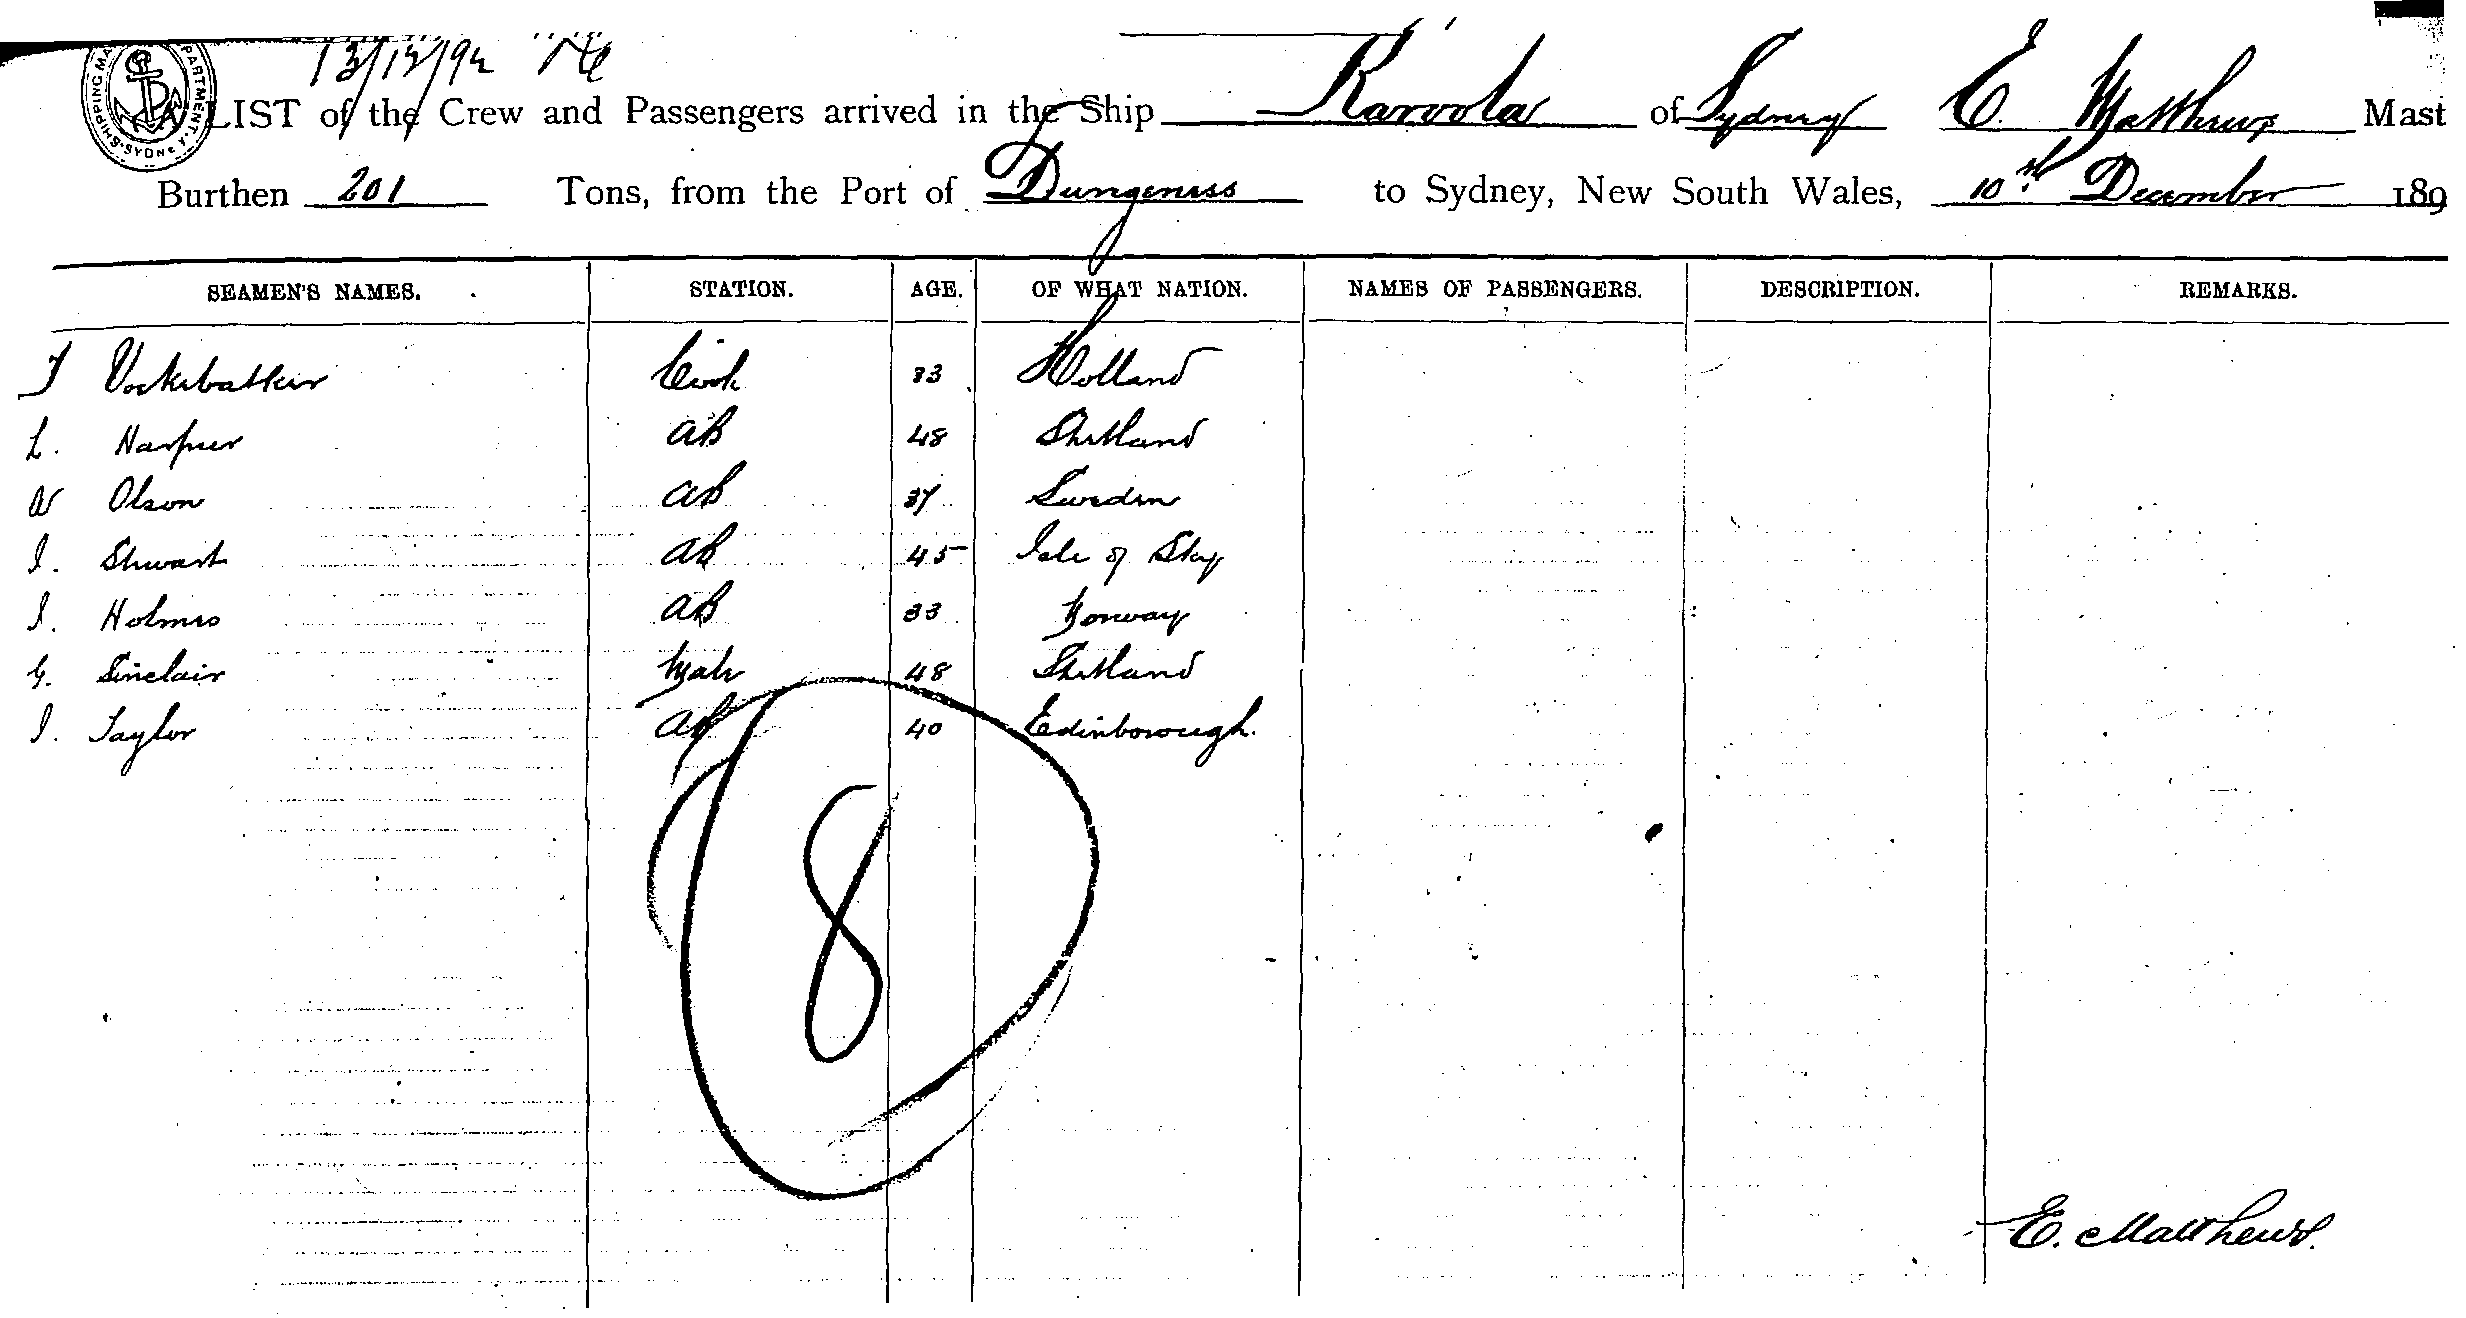 SHIPPING MA PARTMENT SYDNEY
13/12/92
A LIST of the Crew and Passengers arrived in the Ship Karoola of Sydney E Matthews Mast
Burthen 201 Tons, from the Port of Dungeness to Sydney, New South Wales, 10th December 189
SEAMEN'S NAMES. STATION. AGE. OF WHAT NATION. NAMES OF PASSENGERS. DESCRIPTION. REMARKS.
Cook 33 Holland
L. Harper AB 48 Shetland
W Olson AB 37 Sweden
J. Stewart AB 45 Isle of Sky
J. Holmes AB 33 Norway
G. Sinclair Mate 48 Shetland
J. Taylor AB 40 Edinborough.
8
E. Matthews.